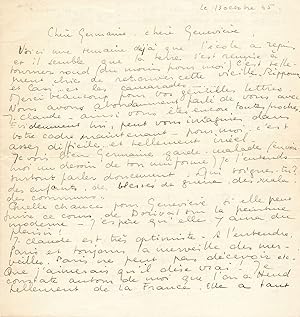 le 13 octobre 45.
Chère Germaine, chère Geneviève,
Voici une semaine déjà que l'école a repris,
et il semble que la terre s'est remise à
tourner rond (du moins pour moi). C'est telle-
ment chic de retrouver cette vieille Riponne
et Lasi, et les camarades.
Merci beaucoup pour vos gentilles lettres
Nous avons abondamment parlé de vous avec
J. Claude, ainsi vous étiez toutes proches.
Evidemment lui, peut vous imaginer dans
votre cadre maintenant, pour moi, c'est
assez difficile et tellement irréel.
Je vois bien Germaine garde-malade (envoie
moi un dessin de ton uniforme) je l'entends
surtout parler doucement. Qui soignes-tu?
des enfants, de blessés de guerre, des mala-
des communs.
Quelle chance pour Geneviève si elle peut
suivre ce cours de Dorival sur la peinture
moderne — J'espère qu'elle y aura du
plaisir!
J. Claude est très optimiste. A l'entendre,
Paris est toujours la merveille des mer-
veilles. Paris ne peut pas décevoir etc.
Que j'aimerais qu'il dise vrai! Je
constate autour de moi que l'on attend
tellement de la France. Elle a tant